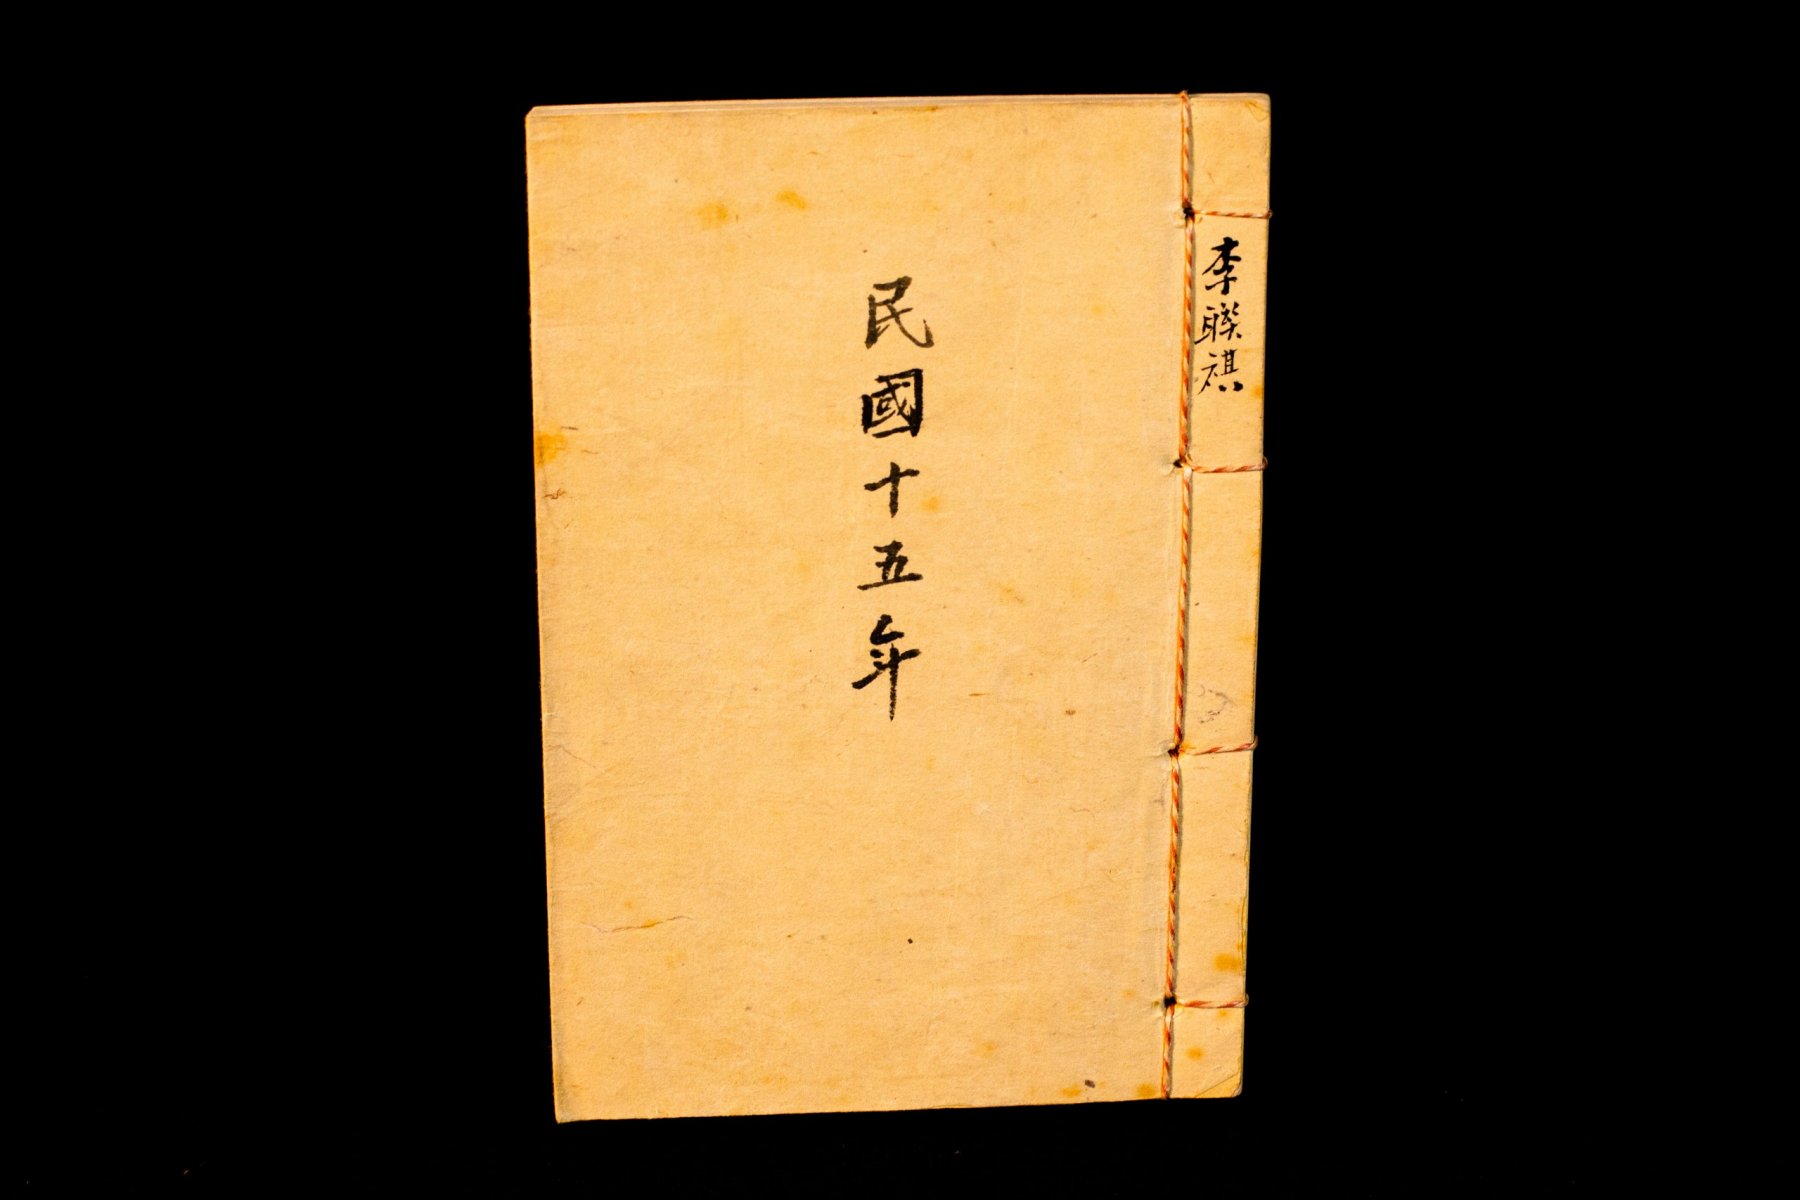 李聯祺
民國十五年